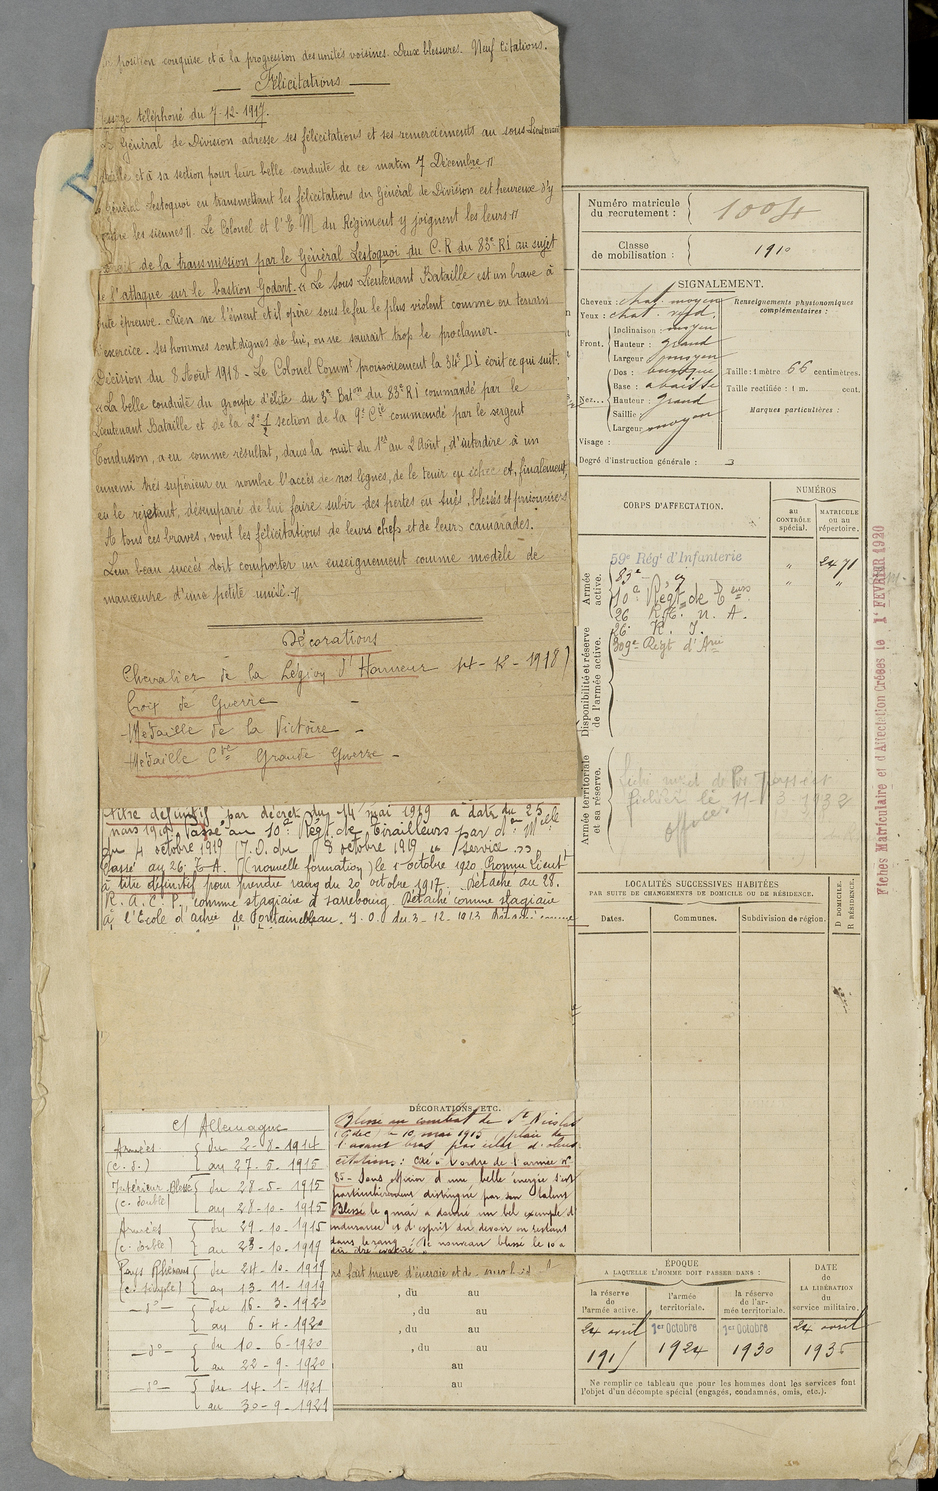 position conquise et à la progression des unités voisines. Deux blessures. Neuf Citations.
Félicitations
téléphoné du 7-12-1917.
Général de Division adresse ses félicitations et ses remerciements au sous-Lieutenant
et à sa section pour leur belle conduite de ce matin 7 Décembre »
Général Lestoquoi en transmettant les félicitations du Général de Division est heureux d'y
les siennes ». Le Colonel et l'E.M du Régiment y joignent les leurs »
de la transmission par le Général Lestoquoi du C.R du 83e RI au sujet
de l'attaque sur le bastion Godart. « Le Sous Lieutenant Bataille est un brave à
toute épreuve. Rien ne l'émeut et il opère sous le feu le plus violent comme en terrain
d'exercice. Ses hommes sont dignes de lui, on ne saurait trop le proclamer.
Décision du 8 Août 1918 - Le Colonel Commt provisoirement la 34e DI écrit ce qui suit.
« La belle conduite du groupe d'élite du 3e Baton du 83e RI commandé par le
Lieutenant Bataille et de la 2e ½ section de la 9e Cie commandé par le sergent
Condusson, a eu comme résultat, dans la nuit du 1er au 2 Août, d'interdire à un
ennemi très supérieur en nombre l'accès de nos lignes, de le tenir en échec et, finalement,
en le rejetant, désemparé de lui faire subir des pertes en tués, blessés et prisonniers
A tous ces braves, vont les félicitations de leurs chefs et de leurs camarades.
Leur beau succès doit comporter un enseignement comme modèle de
manœuvre d'une petite unité. »
Décorations
Chevalier de la Légion d'Honneur 14-12-1918)
Croix de Guerre -
Médaille de la Victoire -
Médaille Cve Grande Guerre -
titre définitif par décret du 14 mai 1919 à dater du 25
mars 1919. Passé au 10e Régt de Tirailleurs par don Melle
du 4 octobre 1919 (J.O. du 8 octobre 1919 service
Classé au 26e T.A. (nouvelle formation) le 1 octobre 1920 Promu Lieutt
à titre définitif pour prendre rang du 20 octobre 1917. Détaché au 28.
R.A.C.P. comme stagiaire à Sarrebourg. Détaché comme stagiaire
à l'Ecole d' de Fontainebleau. J.O. du 3-12-1913
c/ Allemagne
Armées { du 2-8-1914
(c.d.) { au 27-5-1915
Intérieur Blessé { du 28-5-1915
(c. double) { au 28-10-1915
Armées { du 29-10-1915
(c. double) { au 23-10-1919
Pays Rhénans { du 24-10-1919
(c. simple) { au 13-11-1919
-do- { du 16-3-1920
{ au 6-4-1920
-do- { du 10-6-1920
{ au 22-9-1920
-do- { du 14-1-1921
{ au 30-9-1921
DÉCORATIONS, ETC.
Blessé au combat de St Nicolas
10 mai 1915 plaie de
l'avant bras par éclat d'obus
citation : cité à l'ordre de l'armée no
85 - Sous officier d'une belle énergie s'est
particulièrement distingué par son talent
Blessé le 9 mai a donné un bel exemple d'
endurance et d'esprit du devoir en restant
dans le rang ; de nouveau blessé le 10 a
dû être évacué "
fait preuve d'énergie et d
, du au
, du au
, du au
, du au
au
au
Numéro matricule
du recrutement : 1004
Classe
de mobilisation : 1910
SIGNALEMENT.
Cheveux : chat. moyen
Yeux : chat. verd.
Front, Inclinaison : moyen
Hauteur : grand
Largeur : moyen
Nez... Dos : busqué
Base : abaissée
Hauteur : grand
Saillie :
Largeur : moyen
Visage :
Renseignements physionomiques
complémentaires :
Taille : 1 mètre 66 centimètres.
Taille rectifiée : 1 m. cent.
Marques particulières :
Degré d'instruction générale : 3
CORPS D'AFFECTATION.
NUMÉROS
au
CONTRÔLE
spécial.
MATRICULE
ou au
répertoire.
Armée
active.
59e Rég' d'Infanterie " 2471
83e " "
10e Régt de Teurs
26 R.t. n. A.
26e R. I.
309e Régt d'Arie
Disponibilité et réserve
de l'armée active.
Armée territoriale
et sa réserve.
fichier le 11-3 1932
LOCALITÉS SUCCESSIVES HABITÉES
PAR SUITE DE CHANGEMENTS DE DOMICILE OU DE RÉSIDENCE.
Dates.
Communes.
Subdivision de région.
D DOMICILE.
R RÉSIDENCE.
ÉPOQUE
A LAQUELLE L'HOMME DOIT PASSER DANS :
DATE
de
LA LIBÉRATION
du
service militaire.
la réserve
de
l'armée active.
l'armée
territoriale.
la réserve
de l'ar-
mée territoriale.
24 avril 1er Octobre 1er Octobre 24 avril
1915 1924 1930 1935
Ne remplir ce tableau que pour les hommes dont les services font
l'objet d'un décompte spécial (engagés, condamnés, omis, etc.).
Fiches Matriculaire et d'Affectation Créées le 1er FEVRIER 1920